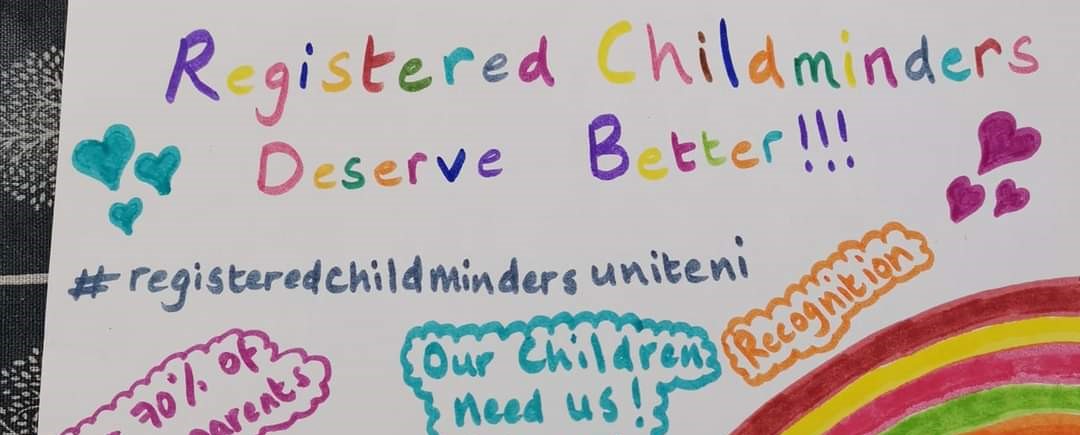 Registered Childminders
Deserve Better!!!
#registeredchildminders uniteni
Recognition
Our Children
need us!
70% of
parents